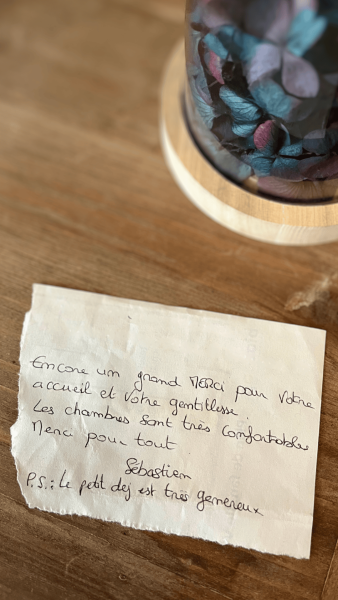 Encore un grand MERCi pour Votre
accueil et Votre gentillesse.
Les chambres sont très Confortables
Merci pour tout
Sébastien
P.S.: Le petit dej est très généreux